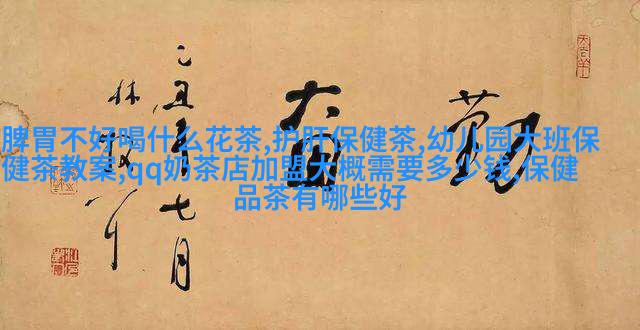 勤奋
乙丑年七月
林散耳
脾胃不好喝什么花茶,护肝保健茶,幼儿园大班保
健茶教案,qq奶茶店加盟大概需要多少钱,保健
品茶有哪些好